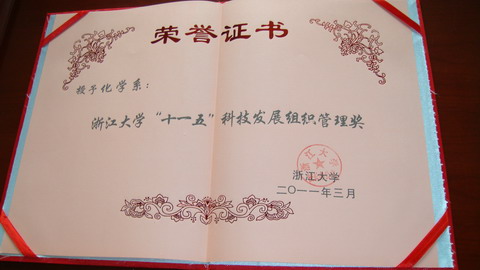 荣誉证书
授予化学系：
浙江大学“十一五”科技发展组织管理奖
浙江大学
二〇一一年三月